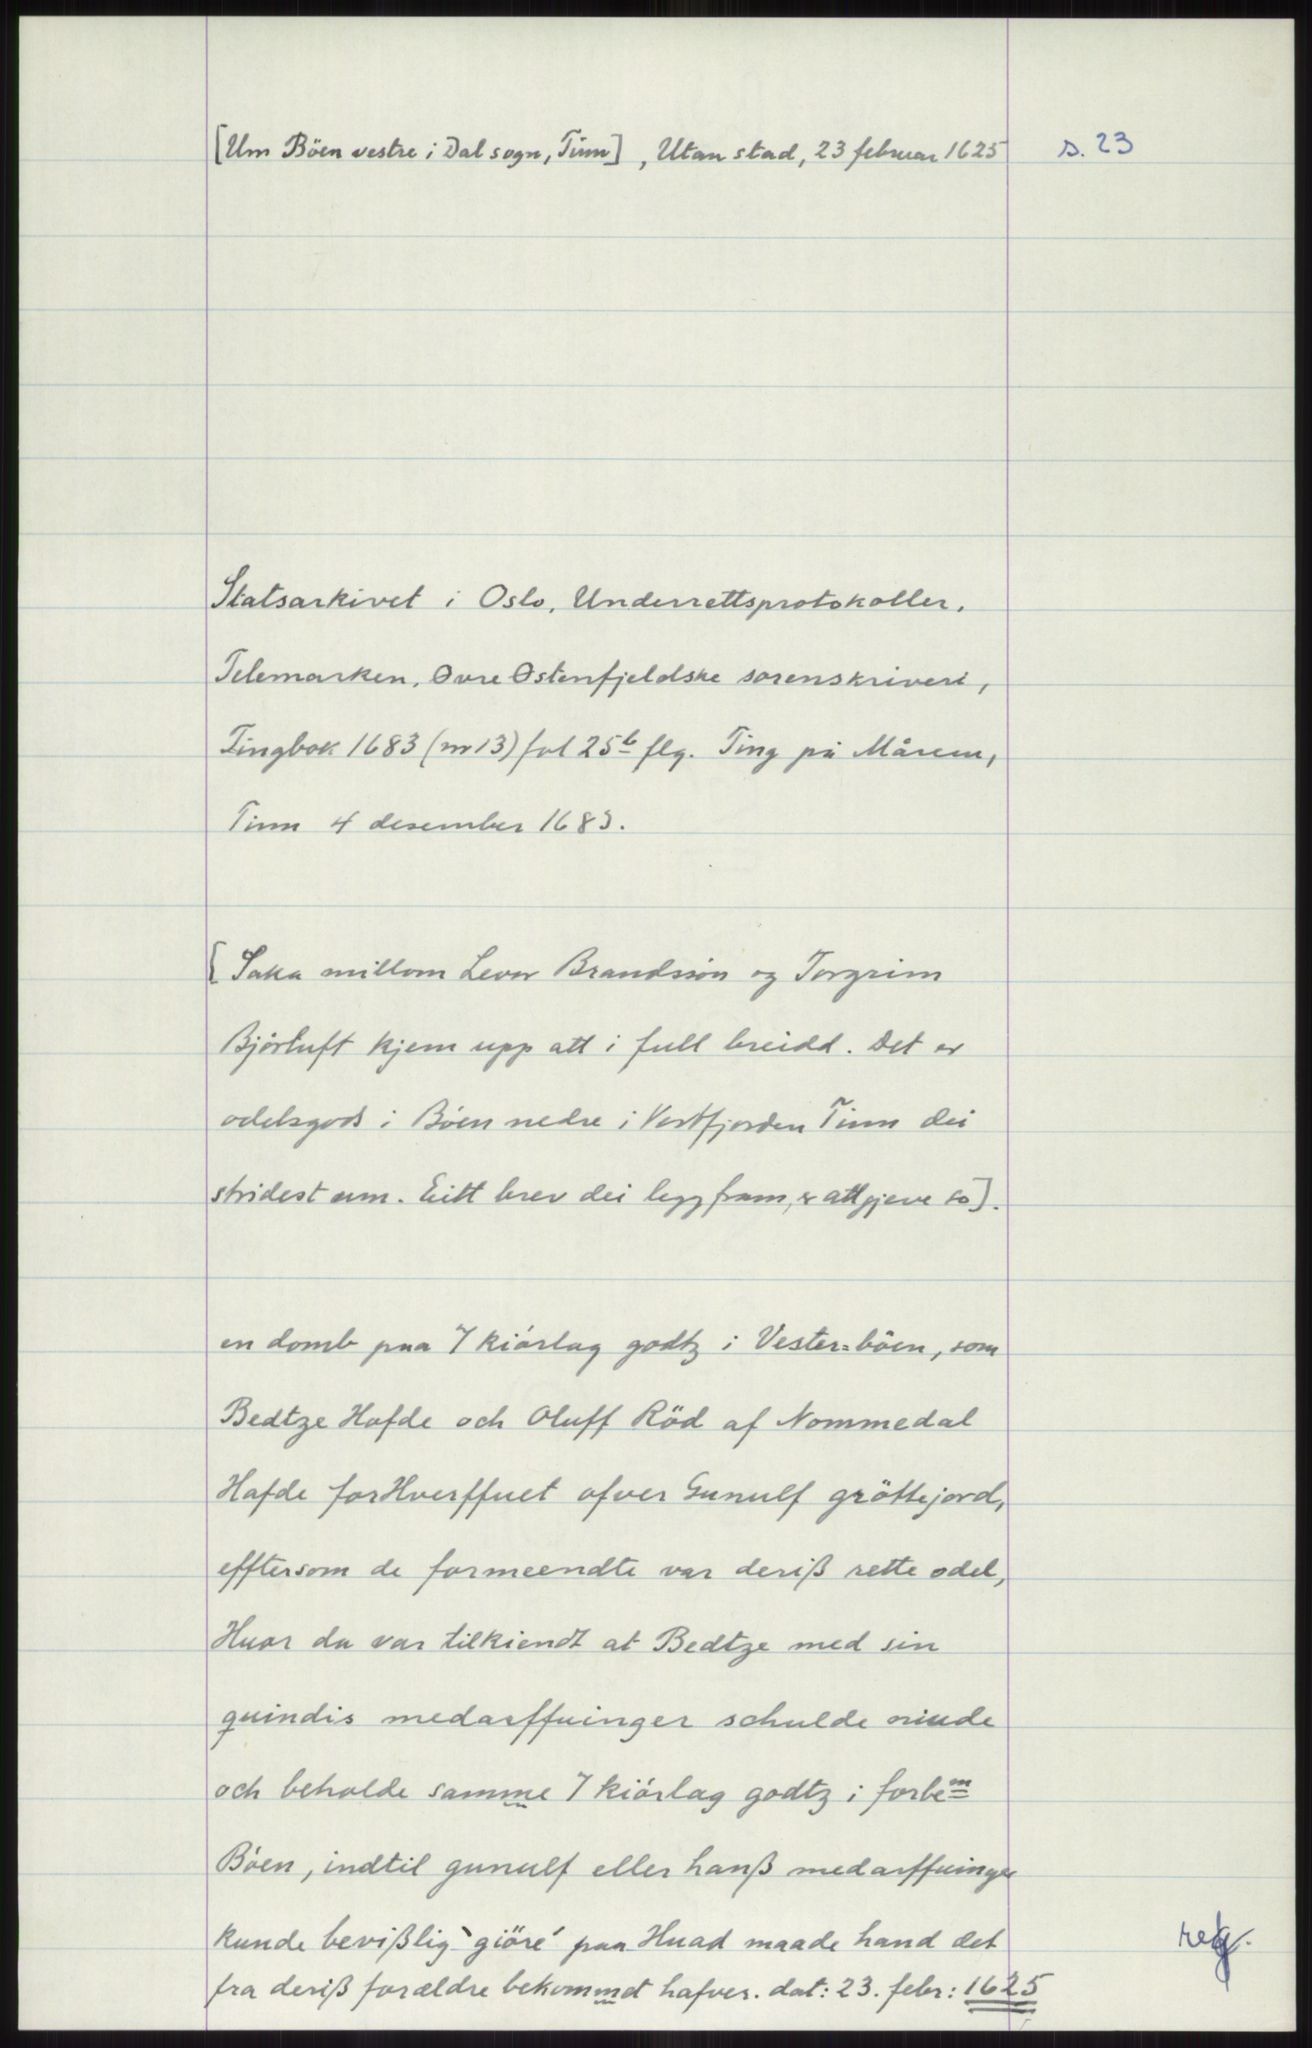 [Um Böen vestre i Dal sogn, Tinn], Utan stad, 23 februar 1625 s. 23
Statsarkivet i Oslo, Underrettsprotokoller,
Telemarken, Øvre Østenfjeldske sorenskriveri,
Tingbok 1683 (nr 13) fol 25b flg. Ting på Mårem,
Tinn 4 desember 1683.
[Saka millom Levor Brandsson og Torgrim
Björtuft kjem upp att i full breidd. Det er
odelsgods i Böen nedre i Vestfjorden Tinn dei
stridest um. Eitt brev dei legg fram, er attgjeve so].
en domb paa 7 kiörlag godtz i Vester=böen, som
Bedtze Hofde och Oluff Röd af Nommedal
Hafde forHverffuet ofver Gunulf gröttejord,
efftersom de formeendte var deriß rette odel,
Huor da var tilkiendt at Bedtze med sin
quindis medarffuinger schulde niude
och beholde samme 7 kiörlag godtz i forbem
Böen, indtil gunulf eller hanß medarffuinger
kunde bevißlig `giöre´ paa Huad maade hand det
fra deriß forældre bekommet hafver. dat: 23. febr: 1625
reg.